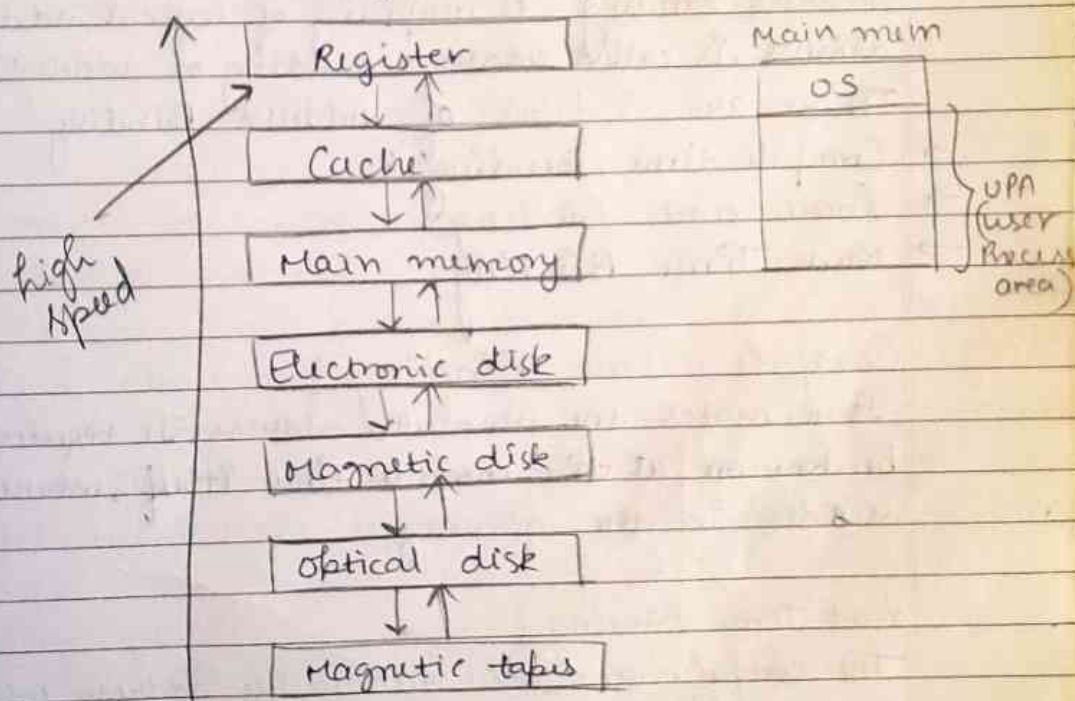 Register
Cache
Main memory
Electronic disk
Magnetic disk
Optical disk
Magnetic tapes
high
speed
Main mem
OS
UPA
(user
Process
area)